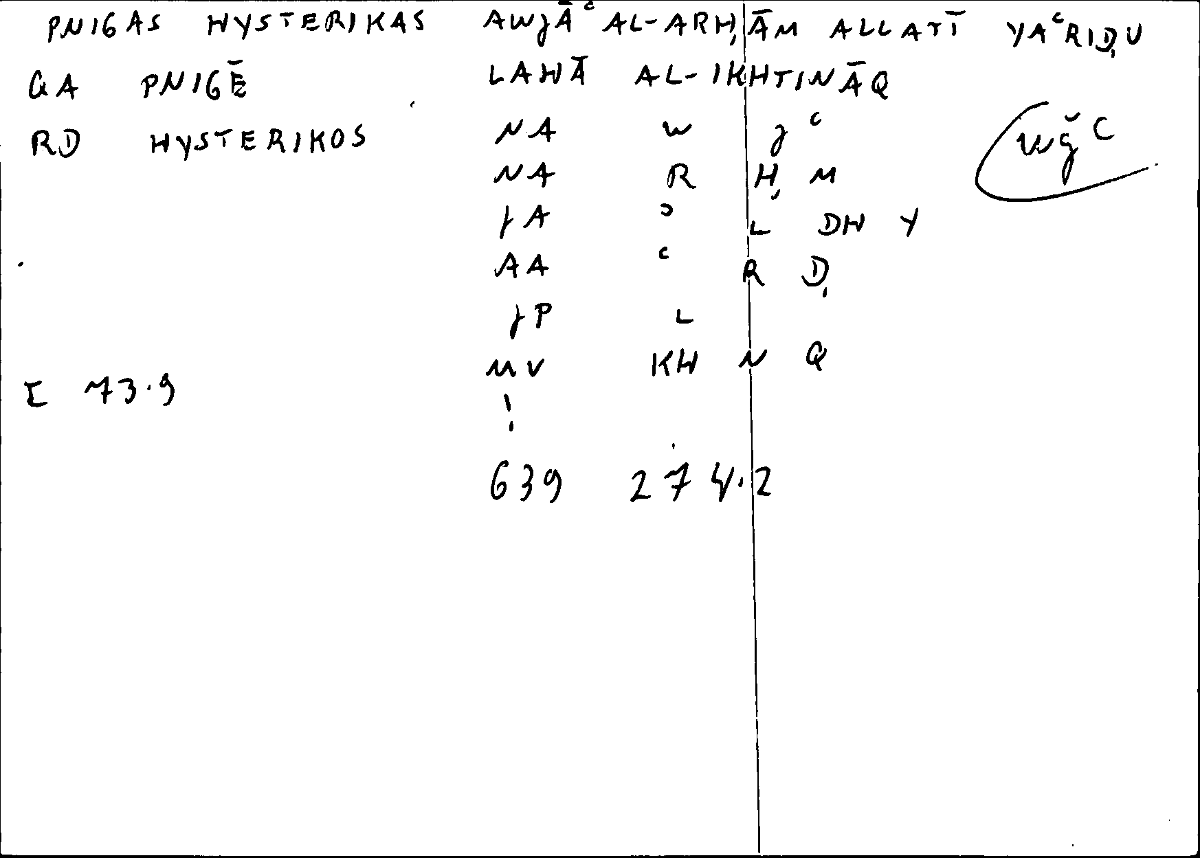 PNIGAS HYSTERIKAS AWJĀʿ AL-ARḤĀM ALLATĪ YAʿRIḌU
GA PNIGĒ LAHĀ AL-IKHTINĀQ
RD HYSTERIKOS NA W J ʿ
wǧʿ
NA R Ḥ M
JA ʾ L DH Y
AA ʿ R Ḍ
JP L
MV KH N Q
I 73.9
!
639 274.2